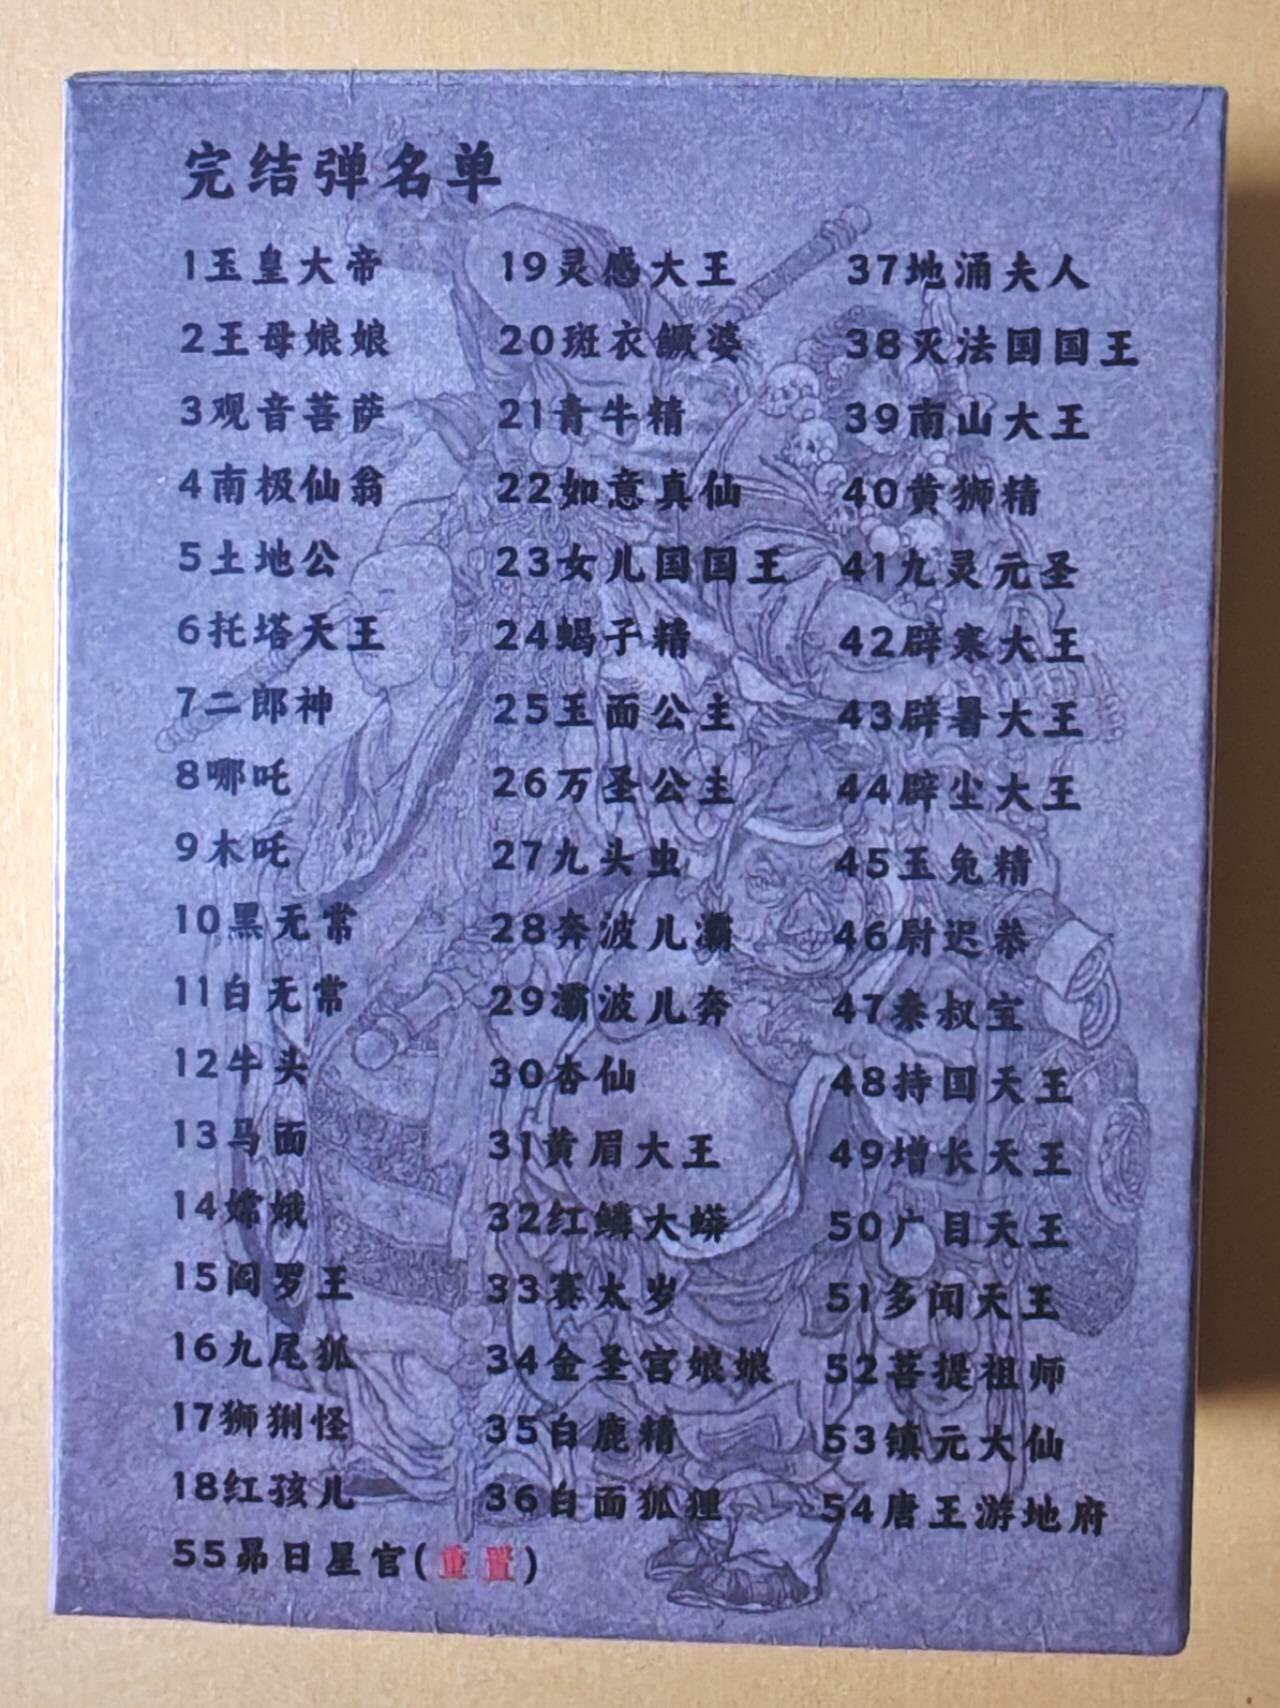 完结弹名单
1玉皇大帝
2王母娘娘
3观音菩萨
4南极仙翁
5土地公
6托塔天王
7二郎神
8哪吒
9木吒
10黑无常
11白无常
12牛头
13马面
14嫦娥
15阎罗王
16九尾狐
17狮猁怪
18红孩儿
55昴日星官(重置)
19灵感大王
20斑衣鳜婆
21青牛精
22如意真仙
23女儿国国王
24蝎子精
25玉面公主
26万圣公主
27九头虫
28奔波儿灞
29灞波儿奔
30杏仙
31黄眉大王
32红鳞大蟒
33赛太岁
34金圣宫娘娘
35白鹿精
36白面狐狸
37地涌夫人
38灭法国国王
39南山大王
40黄狮精
41九灵元圣
42辟寒大王
43辟暑大王
44辟尘大王
45玉兔精
46尉迟恭
47秦叔宝
48持国天王
49增长天王
50广目天王
51多闻天王
52菩提祖师
53镇元大仙
54唐王游地府